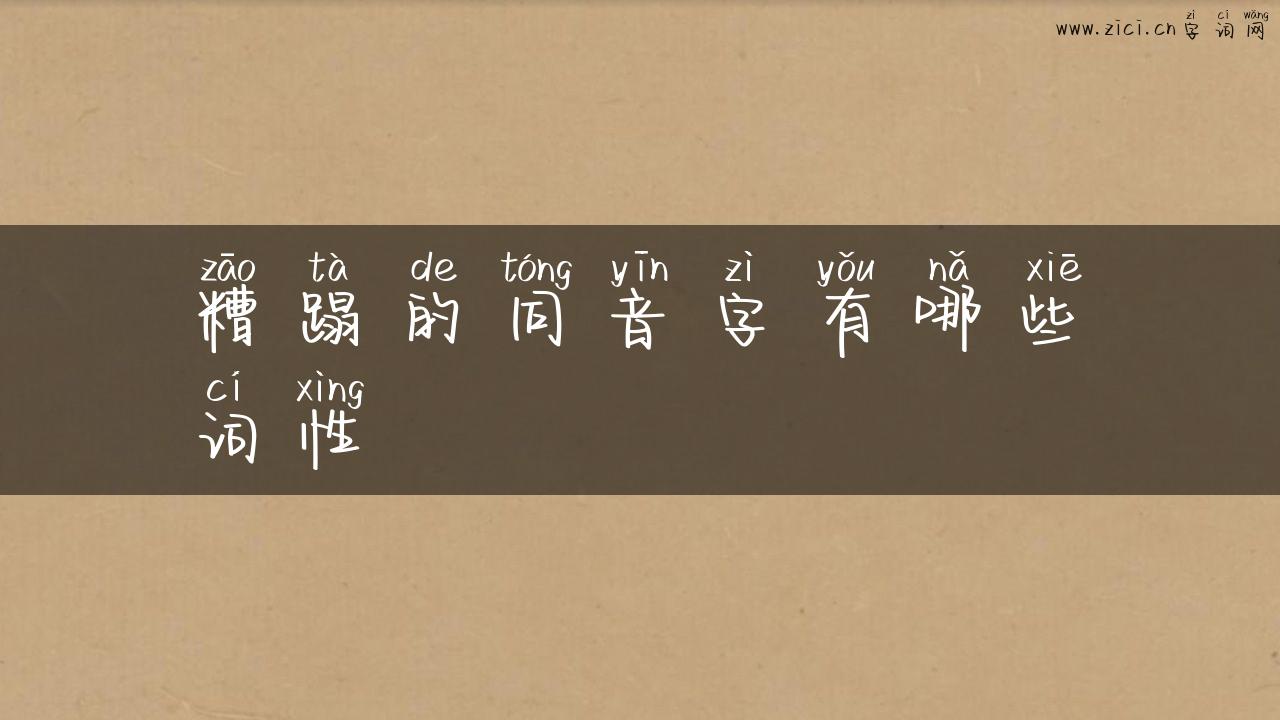 zì cí wǎng
www.zici.cn 字词网
zāo tà de tóng yīn zì yǒu nǎ xiē
糟蹋的同音字有哪些
cí xìng
词性